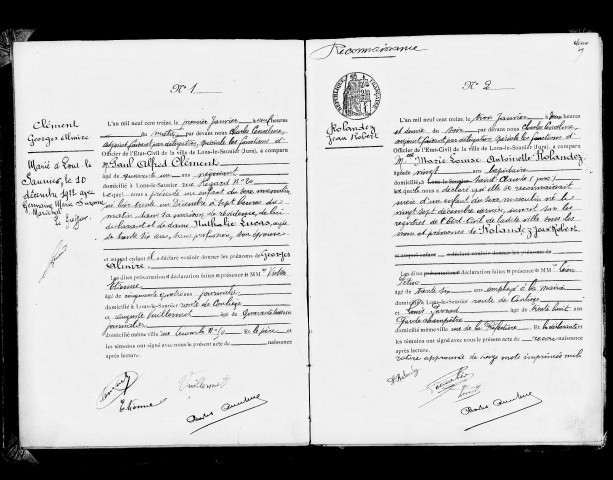 N° 1
Clément
Georges Almire
Marié à Lons-le-
Saunier, le 10
décembre 1912 avec
Germaine Marie Suzanne
Maréchal
Le Greffier
L'an mil neuf cent treize, le premier Janvier à heures
du matin par devant nous Charles
adjoint faisant par délégation spéciale les fonctions d'
Officier de l'Etat-Civil de la ville de Lons-le-Saunier (Jura), a comparu
M. Paul Alfred Clément
âgé de quarante un ans, négociant
domicilié à Lons-le-Saunier rue Regard N° 20
lequel nous a présenté un enfant du sexe masculin
né hier trente un Décembre à sept heures du
matin dans sa maison, de résidence, de lui
déclarant et de dame Nathalie Lucas, âgée
de trente six ans, sans profession, son épouse
auquel enfant il a déclaré vouloir donner les prénoms de Georges
Almire
Les dites présentation et déclaration faites en présence de MM.
Etienne
âgé de cinquante quatre ans journalier
domicilié à Lons-le-Saunier route de Conliège
et Auguste Vuillermet âgé de quarante ans
journalier
domicilié même ville rue Lecourbe N° 50 Et le père et
les témoins ont signé avec nous le présent acte de naissance
après lecture.
Clément
Vuillermet
Etienne
Reconnaissance
N° 2
Rolandez
Jean Robert
REPUBLIQUE FRANÇAISE
L'an mil neuf cent treize, le trois Janvier à heures
et demie du soir par devant nous Charles
adjoint faisant par délégation spéciale les fonctions d'
Officier de l'Etat-Civil de la ville de Lons-le-Saunier (Jura), a comparu
Melle Marie Louise Antoinette Rolandez
âgée de vingt ans, lapidaire
domiciliée à Lons-le-Saunier Saint Claude (Jura)
laquelle nous a déclaré qu'elle se reconnaissait
mère d'un enfant du sexe masculin né le
vingt sept décembre dernier, inscrit sur les
registres de l'Etat Civil de ladite ville sous les
nom et prénoms de Rolandez Jean Robert
auquel enfant a déclaré vouloir donner les prénoms de
Les dites présentation et déclaration faites en présence de MM. Léon
âgé de trente six ans employé à la mairie
domicilié à Lons-le-Saunier route de Conliège
et Louis âgé de trente huit ans
Garde champêtre
domicilié même ville rue de la Préfecture Et la déclarante et
les témoins ont signé avec nous le présent acte de reconnaissance
après lecture.
rature approuvée de onze mots imprimés nuls